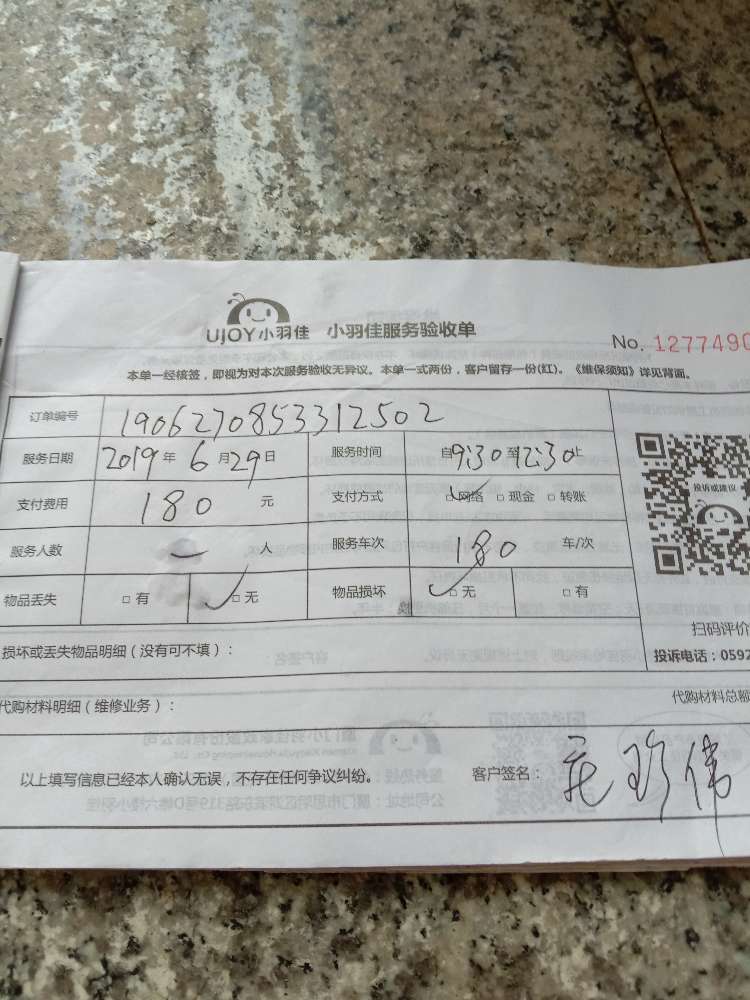 UJOY小羽佳 小羽佳服务验收单
No. 1277490
本单一经核签，即视为对本次服务验收无异议。本单一式两份，客户留存一份(红)。《维保须知》详见背面。
订单编号 1906270853312502
服务日期 2019年6月29日 服务时间 自9:30至12:30止
支付费用 180 元 支付方式 ☑网络 □现金 □转账
服务人数 一 人 服务车次 180 车/次
物品丢失 □有 ☑无 物品损坏 ☑无 □有
投诉或建议
扫码评价
损坏或丢失物品明细（没有可不填）：
投诉电话：0592
代购材料明细（维修业务）：
代购材料总额
以上填写信息已经本人确认无误，不存在任何争议纠纷。 客户签名：